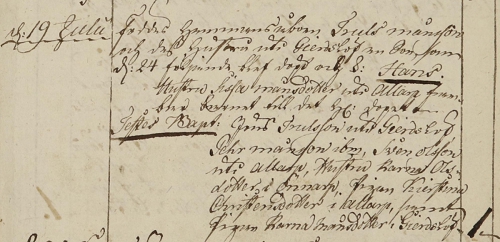 d: 19 Julii föddes Hemmansåboen Truls månsson
och des Hustru uti Gierdslöf en Son som
d: 24 följande blef döpt och k: Hans.
Hustru Sissa månsdotter uti Allarp
bar barnet till det H: dopet
Testes Bapt: Jöns Trulsson uti Gierdslöf
Pehr månsson ibm, Sven Olsson
uti Allarp, Hustru Karna Ols
dotter i önnarp, Pigan Kierstina
Christensdotter i Allarp, samt
Pigan Karna månsdotter i Gierdslöf
1.